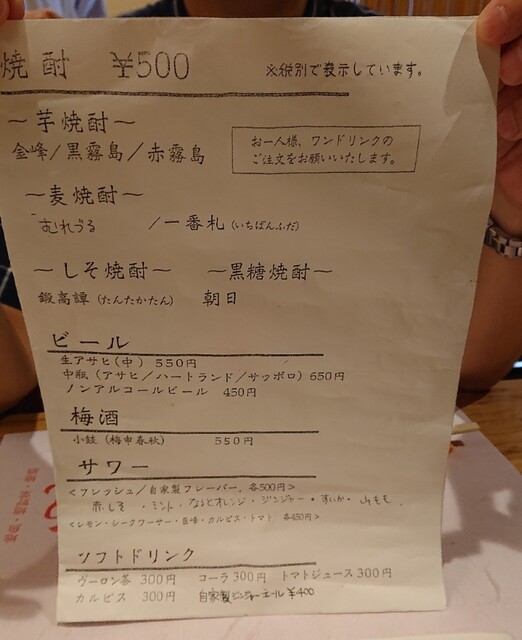 焼酎 ¥500 ※税別で表示しています。
～芋焼酎～
金峰/黒霧島/赤霧島
お一人様、ワンドリンクの
ご注文をお願いいたします。
～麦焼酎～
むれづる /一番札(いちばんふだ)
～しそ焼酎～ ～黒糖焼酎～
鍛高譚(たんたかたん) 朝日
ビール
生アサヒ(中) 550円
中瓶(アサヒ/ハートランド/サッポロ)650円
ノンアルコールビール 450円
梅酒
小鼓(梅申春秋) 550円
サワー
<フレッシュ/自家製フレーバー, 各500円>
赤しそ ・ミント・なるとオレンジ・ジンジャー・すいか・山もも
<レモン・シークワーサー・巨峰・カルピス・トマト 各450円>
ソフトドリンク
ウーロン茶 300円 コーラ300円 トマトジュース300円
カルピス 300円 自家製ジンジャーエール¥400